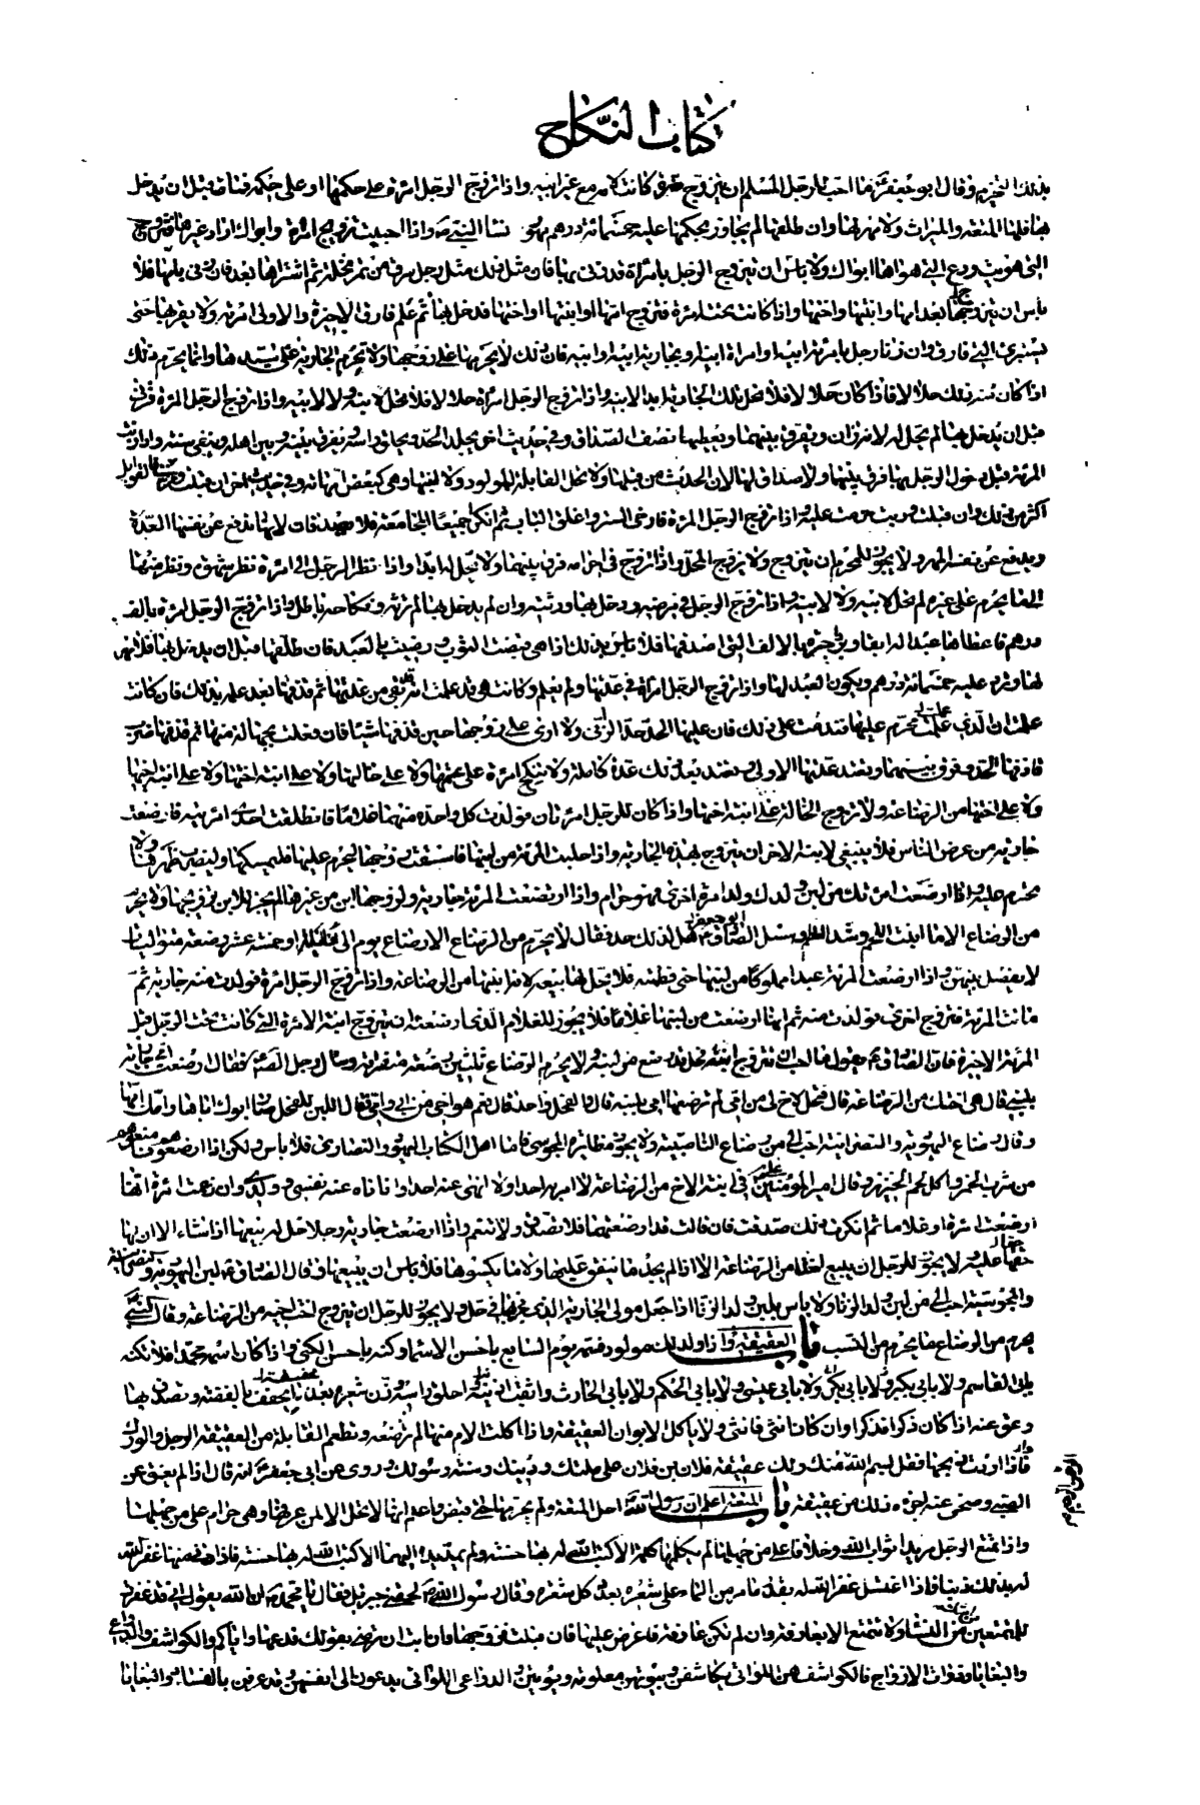 كتاب النكاح
بذلك التحريم وقال ابو جعفر ما احب للرجل المسلم ان يتزوج ضرة كانت لامه مع غير ابيه واذا تزوج الرجل امرئة على حكمها او على حكمه فمات قبل ان يدخل
بها فلها المتعة والميراث ولا مهر لها وان طلقها لم يجاوز بحكمها عليه خمسمائة درهم مهور نساء النبي ص واذا احببت تزويج امرئة وابواك ارادا غيرها فتزوج
التي هويت ودع التي هواها ابواك ولا باس ان يتزوج الرجل بامرأة قد زنى بها فان مثل ذلك مثل رجل سرق من تمر نخلة ثم اشتراها بعد فان زنى بامها فلا
باس ان يتزوجها بعد امها وابنتها واختها واذا كانت تحته امرئة فتزوج امها او ابنتها او اختها فدخل بها ثم علم فارق الاخيرة والاولى امرئته ولا يقربها حتى
يستبرئ التي فارق وان زنا رجل بامرئة ابيه او امراة ابنه او بجارية ابيه او ابنه فان ذلك لا يحرمها على زوجها ولا يحرم الجارية على سيدها وانما يحرم ذلك
اذا كان منه ذلك حلالا فاذا كان حلالا فلا تحل تلك الجارية ابدا لابنه واذا تزوج الرجل امرئة حلالا فلا تحل لابنه ولا لابيه واذا تزوج الرجل المرئة فزنى
قبل ان يدخل بها لم تحل له لانه زان ويفرق بينهما ويعطيها نصف الصداق وفي حديث اخر يجلد الحد ويحلق راسه ويفرق بينه وبين اهله وينفى سنة واذا زنت
المرئة قبل دخول الرجل بها فرق بينهما ولا صداق لها لان الحدث من قبلها ولا تحل القابلة للمولود ولا ابنتها وهي كبعض امهاته وفي حديث اخر ان قبلت ومرت فالقوابل
اكثر من ذلك وان قبلت وربت حرمت عليه واذا تزوج الرجل المرئة فارخى الستر واغلق الباب ثم انكرا جميعا المجامعة فلا يصدقان لانها تدفع عن نفسها العدة
ويدفع عن نفسه المهر ولا يجوز للمحرم ان يتزوج ولا يزوج المحل واذا تزوج في احرامه فرق بينهما ولا تحل له ابدا واذا نظر الرجل الى امرئة نظر شهوة ونظر منها
الى ما يحرم على غيره لم تحل لابيه ولا لابنه واذا تزوج الرجل في مرضه ودخل بها ورثته وان لم يدخل بها لم ترثه ونكاحه باطل واذا تزوج الرجل امرئة بالف
درهم فاعطاها عبدا له ابقا وبرد حبرة بالالف التي اصدقها فلا باس بذلك اذا هي قبضت الثوب ورضيت بالعبد فان طلقها قبل ان يدخل بها فلا مهر
لها وترد عليه خمسمائة درهم ويكون العبد لها واذا تزوج الرجل امرأة في عدتها ولم يعلم وكانت هي قد علمت انه بقي من عدتها ثم قذفها بعد علمه بذلك فان كانت
علمت ان الذي عملت محرم عليها فقدمت على ذلك فان عليها الحد حد الزنى ولا ارى على زوجها حين قذفها شيئا فان فعلت بجهالة منها ثم قذفها ضرب
قاذفها الحد وفرق بينهما وتعتد عدتها الاولى وتعتد بعد ذلك عدة كاملة ولا تنكح امرئة على عمتها ولا على خالتها ولا على ابنة اختها ولا على ابنة اخيها
ولا على اختها من الرضاعة ولا تزوج الخالة على ابنة اختها واذا كان للرجل امرئتان فولدت كل واحدة منهما غلاما فانطلقت احدى امرئتيه فارضعت
جارية من عرض الناس فلا ينبغي لابنه الاخر ان يتزوج بهذه الجارية واذا حلبت المرئة من لبنها فاسقت زوجها لتحرم عليه فليمسكها وليضرب ظهرها ولا
تحرم عليه واذا ارضعت امرئتك من لبن ولدك ولد امرئة اخرى فهو حرام واذا ارضعت المرئة جارية ولزوجها ابن من غيرها لم يجز للابن تزويجها ولا يحرم
من الرضاع الا ما انبت اللحم وشد العظم وسئل الصادق ع هل لذلك حد فقال لا يحرم من الرضاع الا رضاع يوم الى الليل او خمسة عشر رضعة متواليات
لا يفصل بينهن واذا ارضعت المرئة عبدا مملوكا من لبنها حتى فطمته فلا يحل لها بيعه لانه ابنها من الرضاعة واذا تزوج الرجل امرئة فولدت منه جارية ثم
ماتت المرئة فتزوج اخرى فولدت منه ثم انها ارضعت من لبنها غلاما فلا يجوز للغلام الذي ارضعته ان يتزوج ابنة الامرئة التي كانت تحت الرجل قبل
المرئة الاخيرة فان الصادق ع يقول ما احب ان تتزوج ابنة فحل قد رضع من لبنه
بلبني قال هي اختك من الرضاعة قال فتحل لاخ لي من امي لم ترضعها امي بلبنه قال والفحل واحد قال نعم هو اخي من ابي وامي فقال اللبن للفحل صار ابوك اباها وامك امها
وقال رضاع اليهودية والنصرانية احب الي من رضاع الناصبية ولا يجوز مظائرة المجوسي فاما اهل الكتاب اليهود والنصارى فلا باس ولكن اذا ارضعوهم منعوهم
من شرب الخمر واكل لحم الخنزير وقال امير المؤمنين عليه السلام في ابنة الاخ من الرضاعة لا امر به احدا ولا انهى عنه احدا وانا ناه عنه نفسي وولدي وان زعمت امرئة انها
ارضعت امرئة او غلاما ثم انكرت ذلك صدقت فان قالت قد ارضعتهما فلا تصدق ولا تنعم واذا ارضعت جارية رجلا حل له بيعها اذا شاء الا ان لها
حقا عليه ولا يجوز للرجل ان يبيع لحظه من الرضاعة الا اذا لم يجد ما ينفق عليها ولا ما يكسوها فلا باس ان يبيعها وقال الصادق ع لبن اليهودية والنصرانية
والمجوسية احب الي من لبن ولد الزنا ولا باس بلبن ولد الزنا اذا جعل مولى الجارية الذي فجر بها في حل ولا يجوز للرجل ان يتزوج اخت اخيه من الرضاعة وقال النبي ص
يحرم من الرضاع ما يحرم من النسب باب العقيقة واذا ولد لك مولود فسمه يوم السابع باحسن الاسماء وكنه باحسن الكنى واذا كان اسمه محمدا فلا تكنه
بابي القاسم ولا بابي بكر ولا بابي عيسى ولا بابي الحكم ولا بابي الحارث واثقب اذنيه احلق راسه وزن شعره بعد ما يجفف بالفضة وتصدق بها
وعق عنه اذا كان ذكرا فذكرا وان كان انثى فانثى ولا ياكل الابوان العقيقة فاذا اكلت الام منها لم ترضعه وتطعم القابلة من العقيقة الرجل والورك
فاذا اردت ذبحها فقل بسم الله منك ولك عقيقة فلان بن فلان على ملتك ودينك وسنة رسولك وروي عن ابي جعفر انه قال اذا لم يعق عن
الصبي وضحى عنه اجزءه ذلك من عقيقته باب المتعة اعلم ان رسول الله احل المتعة ولم يحرمها حتى قبض واعلم انها لا تحل الا لمن عرفها وهي حرام على من جهلها
واذا تمتع الرجل مريدا ثواب الله وخلافا على من جهلها لم يكلمها كلمة الا كتب الله له بها حسنة ولم يمد يده اليها الا كتب الله له بها حسنة فاذا دنى منها غفر الله
له بذلك ذنبا فاذا اغتسل غفر الله له بقدر ما مر من الماء على شعره بعدد كل شعرة وقال رسول الله لحقني جبرئيل فقال يا محمد ان الله يقول اني قد غفرت
للمتمتعين من النساء ولا تتمتع الا بعارفة وان لم تكن عارفة فاعرض عليها فان قبلت فتزوجها وان ابت ان ترضى بقولك فدعها واياكم والكواشف والدواعي
والبغايا وذوات الازواج فالكواشف هن اللواتي يكاشفن وبيوتهن معلومة ويؤتين والدواعي اللواتي يدعون الى انفسهن وقد عرفن بالفساد والبغايا